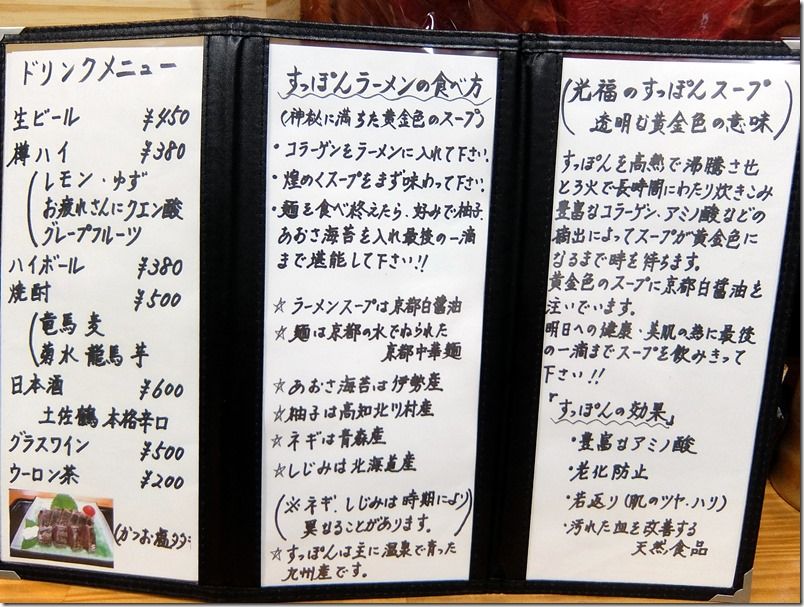 ドリンクメニュー
生ビール ¥450
樽ハイ ¥380
(レモン・ゆず
お疲れさんにクエン酸
グレープフルーツ
ハイボール ¥380
焼酎 ¥500
(竜馬 麦
菊水 龍馬 芋
日本酒 ¥600
土佐鶴 本格辛口
グラスワイン ¥500
ウーロン茶 ¥200
(かつお塩タタキ
すっぽんラーメンの食べ方
(神秘に満ちた黄金色のスープ)
・コラーゲンをラーメンに入れて下さい.
・煌めくスープをまず味わって下さい.
・麺を食べ終えたら、好みで柚子、
あおさ海苔を入れ最後の一滴
まで堪能して下さい!!
☆ラーメンスープは京都白醤油
☆麺は京都の水でねられた
京都中華麺
☆あおさ海苔は伊勢産
☆柚子は高知北川村産
☆ネギは青森産
☆しじみは北海道産
(※ネギ、しじみは時期により
異なることがあります。)
☆すっぽんは主に温泉で育った
九州産です。
(光福のすっぽんスープ
透明な黄金色の意味)
すっぽんを高熱で沸騰させ
とろ火で長時間にわたり炊きこみ
豊富なコラーゲン、アミノ酸などの
摘出によってスープが黄金色に
なるまで時を待ちます。
黄金色のスープに京都白醤油を
注いでいます。
明日への健康・美肌の為に最後
の一滴までスープを飲みきって
下さい!!
『すっぽんの効果』
・豊富なアミノ酸
・老化防止
・若返り(肌のツヤ、ハリ)
・汚れた血を改善する
天然食品